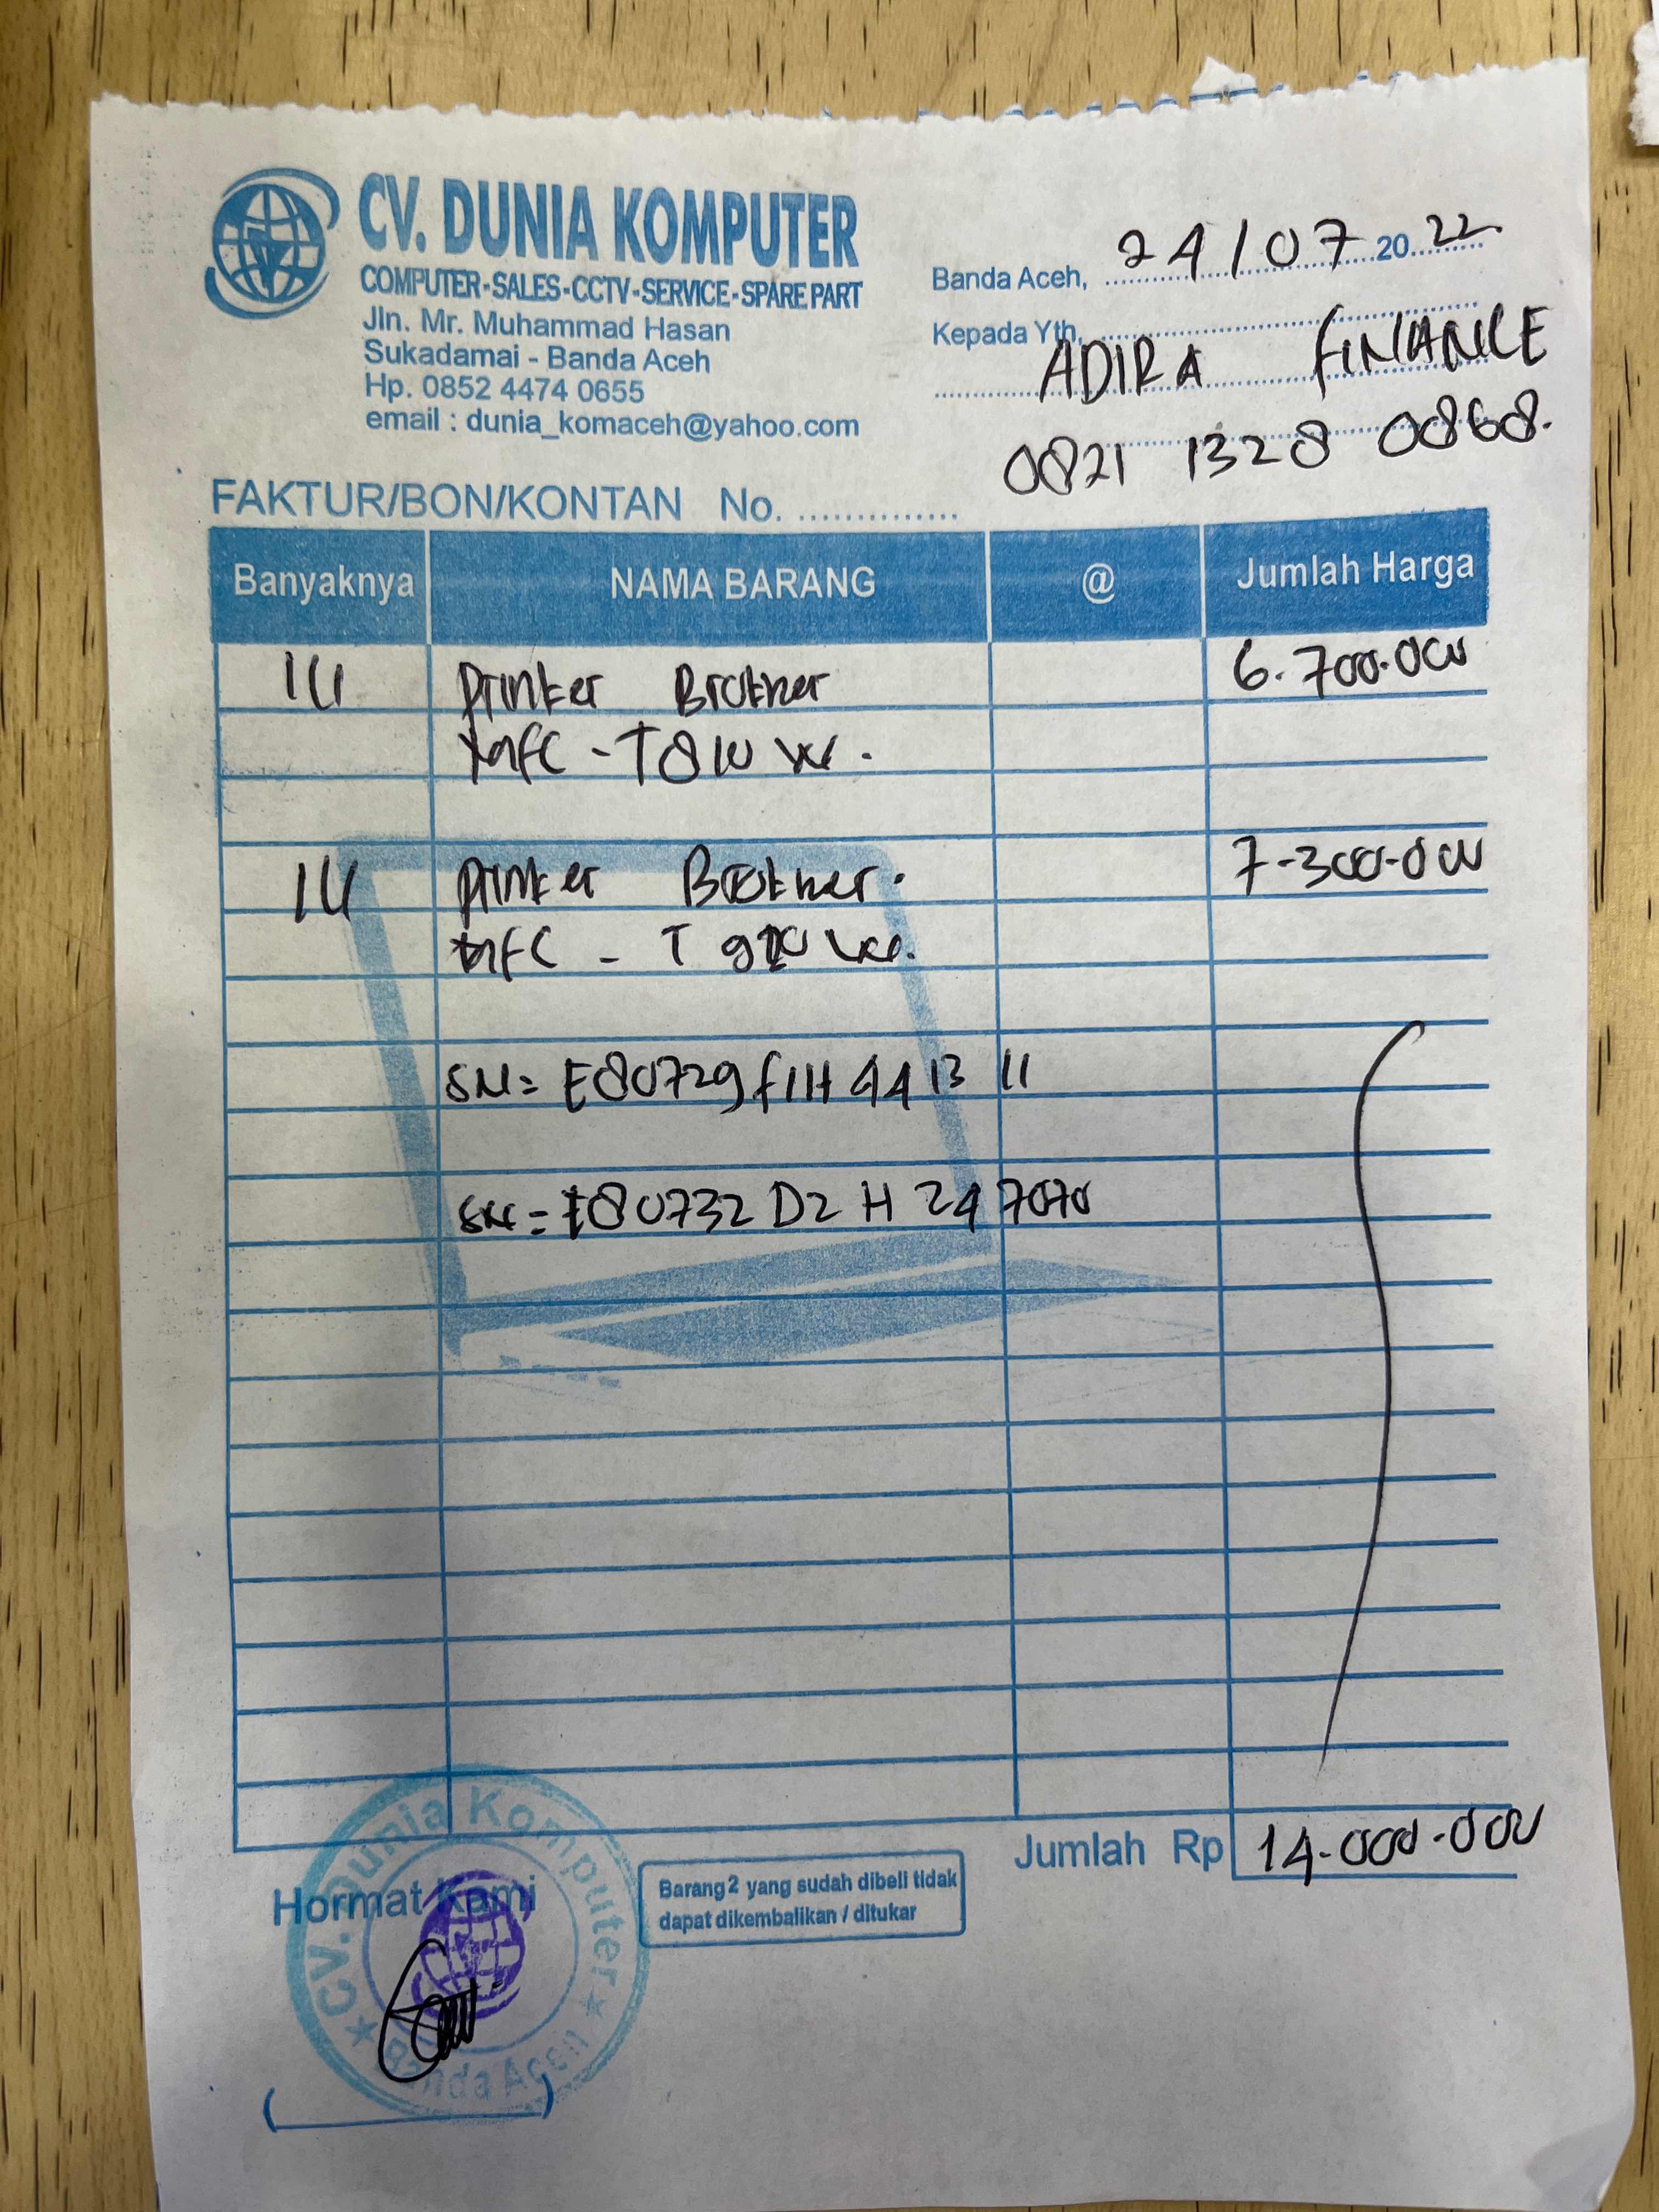 CV. DUNIA KOMPUTER
COMPUTER-SALES-CCTV-SERVICE-SPARE PART
Jln. Mr. Muhammad Hasan
Sukadamai - Banda Aceh
Hp. 0852 4474 0655
email : dunia_komaceh@yahoo.com
Banda Aceh, 24/07 2022
Kepada Yth,
ADIRA FINANCE
0821 1328 0868.
FAKTUR/BON/KONTAN No. ...............
Banyaknya NAMA BARANG @ Jumlah Harga
1U Printer Brother 6.700.000
MFC - T810W.
1U Printer Brother. 7-300-000
MFC - T 920W.
SN= E80729F1H441311
SN= E80732D2H247070
Jumlah Rp 14-000-000
Hormat Kami
Barang2 yang sudah dibeli tidak
dapat dikembalikan / ditukar
CV. Dunia Komputer
Banda Aceh